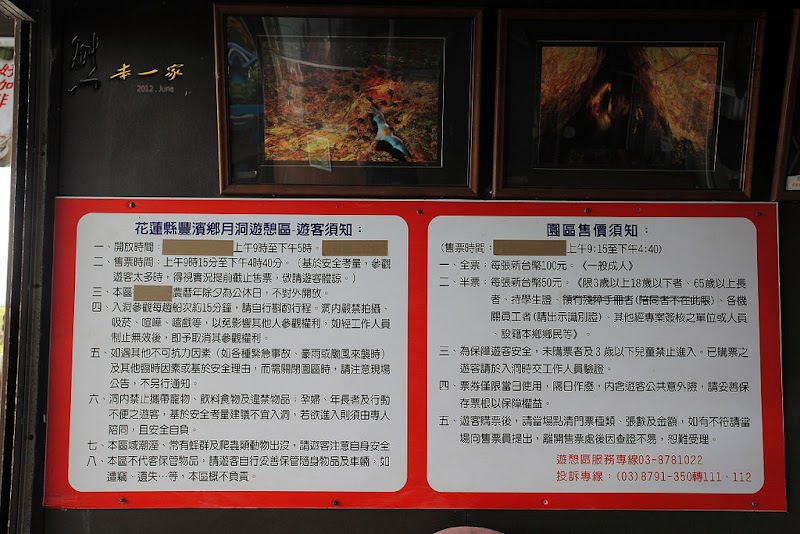 好咖啡
本一家
2012.June
花蓮縣豐濱鄉月洞遊憩區 遊客須知：
一、開放時間：上午9時至下午5時。
二、售票時間：上午9時15分至下午4時40分。（基於安全考量，參觀
遊客太多時，得視實況提前截止售票，敬請遊客體諒。）
三、本區農曆年除夕為公休日，不對外開放。
四、入洞參觀每趟船次約15分鐘，請自行斟酌行程。洞內嚴禁拍攝、
吸菸、喧嘩、嬉戲等，以免影響其他人參觀權利，如經工作人員
制止無效後，即予取消其參觀權利。
五、如遇其他不可抗力因素（如各種緊急事故、豪雨或颱風來襲時）
及其他臨時因素或基於安全理由，而需關閉園區時，請注意現場
公告，不另行通知。
六、洞內禁止攜帶寵物、飲料食物及違禁物品；孕婦、年長者及行動
不便之遊客，基於安全考量建議不宜入洞，若欲進入則須由專人
陪同，且安全自負。
七、本區域潮溼、常有蜂群及爬蟲類動物出沒，請遊客注意自身安全
八、本區不代客保管物品，請遊客自行妥善保管隨身物品及車輛，如
遭竊、遺失…等，本區概不負責。
園區售價須知：
（售票時間：上午9:15至下午4:40）
一、全票：每張新台幣100元。《一般成人》
二、半票：每張新台幣50元。《限3歲以上18歲以下者、65歲以上長
者、持學生證、領有殘障手冊者(陪同者不在此限)、各機
關員工者(請出示識別證)、其他經專案簽核之單位或人員
、設籍本鄉鄉民等》。
三、為保障遊客安全，未購票者及3歲以下兒童禁止進入。已購票之
遊客請於入洞時交工作人員驗證。
四、票券僅限當日使用，隔日作廢，內含遊客公共意外險，請妥善保
存票根以保障權益。
五、遊客購票後，請當場點清門票種類、張數及金額，如有不符請當
場向售票員提出，離開售票處後因查證不易，恕難受理。
遊憩區服務專線03-8781022
投訴專線：(03)8791-350轉111、112